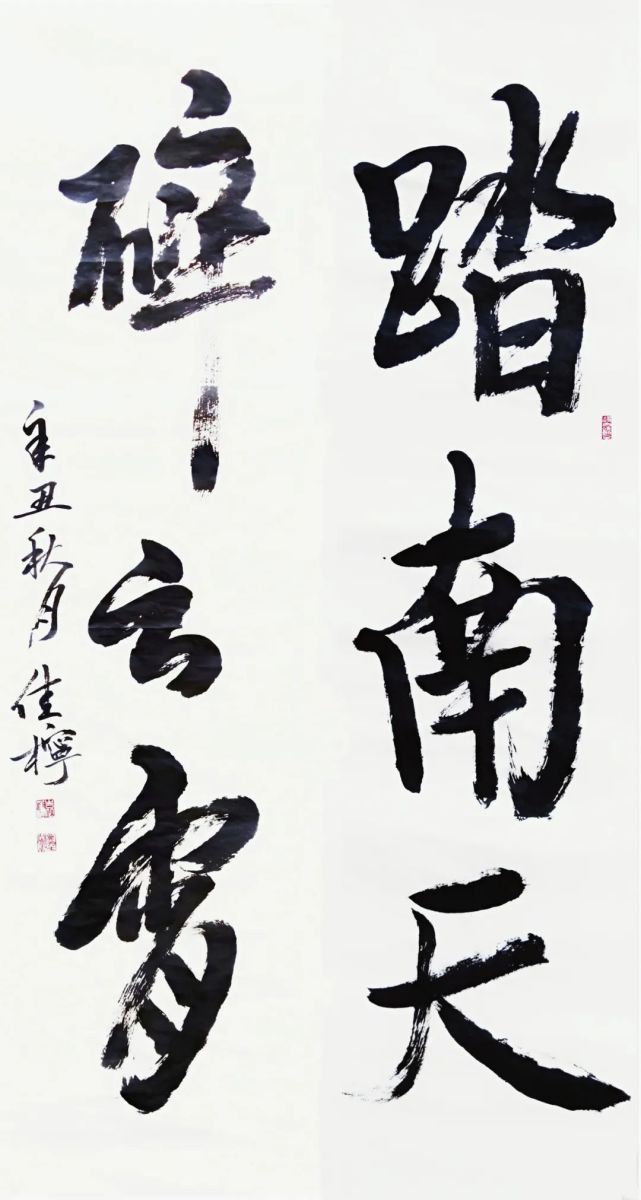 踏南天
碎云霄
辛丑秋月佳檸